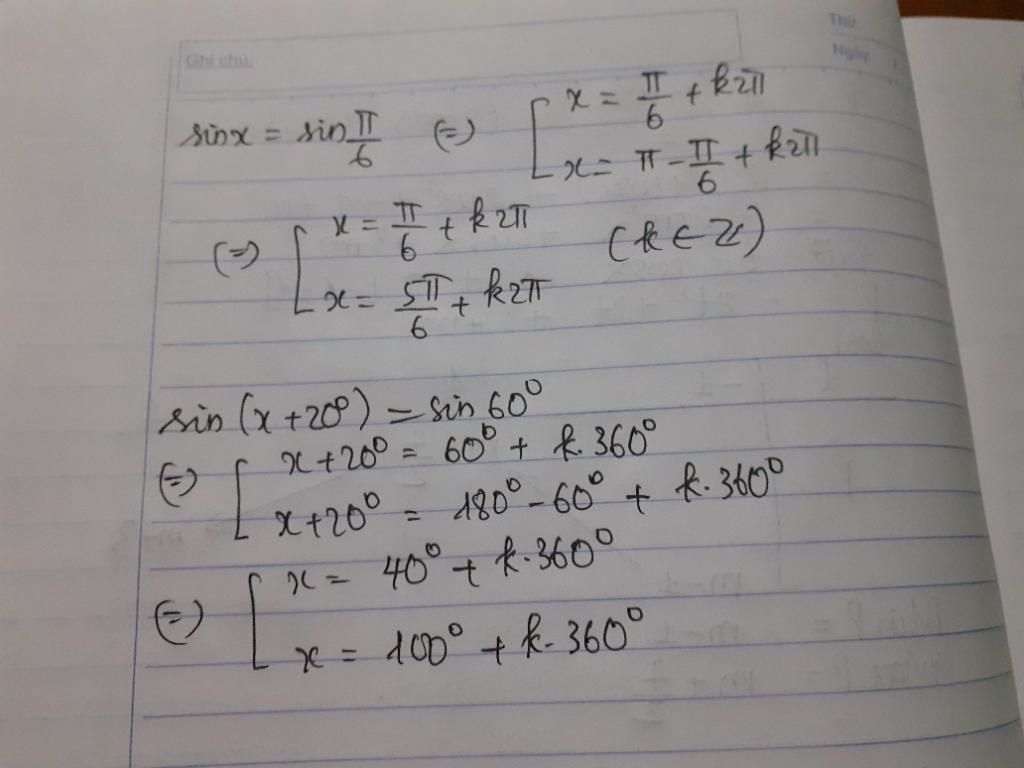 Thứ
Ghi chú:
Ngày
sinx = sin π/6 (=) [ x = π/6 + k2π
x = π - π/6 + k2π
(=) [ x = π/6 + k2π (k ∈ Z)
x = 5π/6 + k2π
sin (x + 20⁰) = sin 60⁰
(=) [ x + 20⁰ = 60⁰ + k. 360⁰
x + 20⁰ = 180⁰ - 60⁰ + k. 360⁰
(=) [ x = 40⁰ + k. 360⁰
x = 100⁰ + k. 360⁰